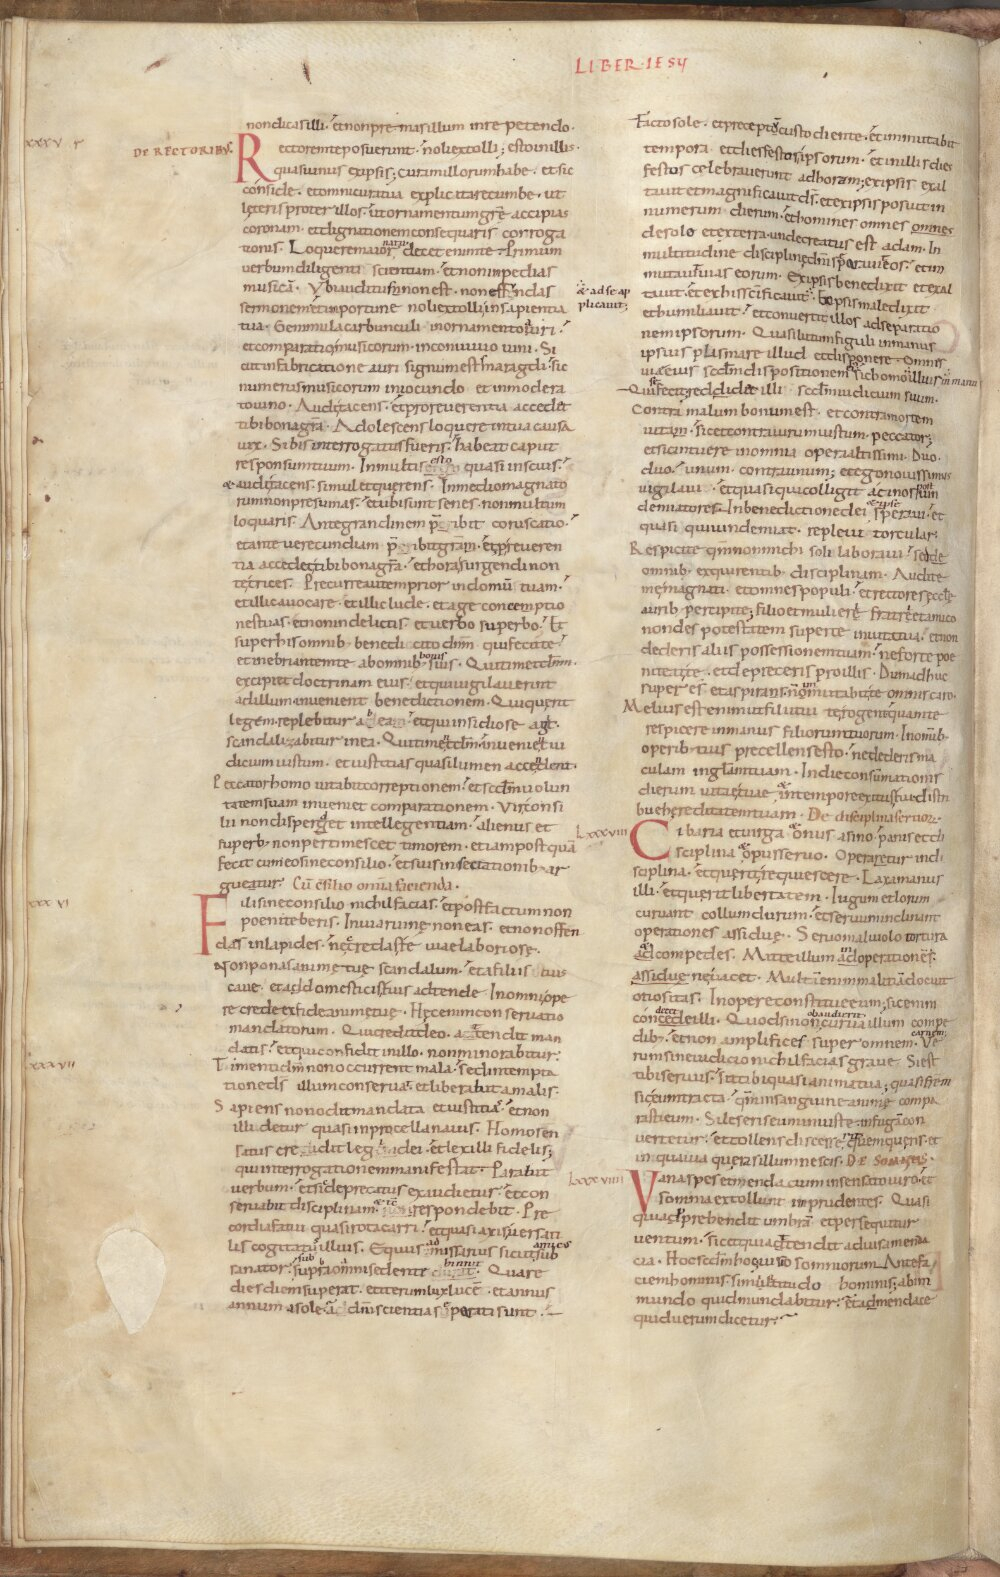 LIBER · IESV
non dicas illi · et non premas illum in repetendo ·
XXXV
DE RECTORIBVS
Rectorem te posuerunt · noli extolli ; esto in illis ·
quasi unus ex ipsis ; curam illorum habe · et sic
conside · et omni cura tua explicita recumbe · ut
leteris propter illos · et ornamentum grē accipias
coronam · et dignationem consequaris corroga
tionis · Loquere maior natu decet enim te · Primum
verbum diligenti scientiam · et non impedias
musicā · Vbi auditus non est · non effundas
sermonem et importune noli extolli in sapientia
tua · Gemmula carbunculi in ornamento auri ·
et comparatio musicorum in conuiuio uini · Si
cut in fabricatione auri signum est smaragdi · sic
numerus musicorum in iocundo et in modera
to uino · Audi tacens · et pro reuerentia accedet
tibi bona grā · Adolescens loquere in tua causa
uix · Si bis interrogatus fueris · habeat caput
responsum tuum · In multis esto quasi inscius ·
& audi tacens simul et querens · In medio magnato
rum non presumas · et ubi sunt senes · non multum
loquaris · Ante grandinem pribit coruscatio ·
et ante uerecundiam pribit grām · et pro reueren
tia accedet tibi bona grā · et hora surgendi non
te trices · Precurre autem prior in domū tuam ·
et illic auocare · et illic lude · et age conceptio
nes tuas · et non in delictis et uerbo superbo · Et
super his omnib · benedicito dnm · qui fecit te ·
et inebriantem te ab omnib · bonis suis · Qui timet dnm ·
excipiet doctrinam eius · et qui uigilauerint
ad illum inuenient benedictionem · Qui querit
legem · replebitur ab ea · et qui insidiose agit ·
scandalizabitur in ea · Qui timet dnm · inueniet iu
dicium iustum · et iustitias quasi lumen accendent ·
Peccator homo uitabit correptionem · et scdm uolun
tatem suam inueniet comparationem · Vir consi
lii non disperget intellegentiam · alienus et
superb · non pertimescet timorem · et iam postquā
fecit cum eo sine consilio · et suis insectationib · ar
guetur · Cū csilio omnia facienda ·
XXXVI
Fili sine consilio nichil facias · et post factum non
poeniteberis · In uia ruine non eas · et non offen
das in lapides · nec credas te uiae laboriose ·
Non ponas anime tue scandalum · et a filiis tuis
caue · et a domesticis tuis adtende · In omni ope
re crede ex fide anime tue · Hec enim conseruatio
mandatorum · Qui credit deo · attendit man
datis · et qui confidit in illo · non minorabitur ·
XXXVII
Timenti dnm non occurrent mala · sed in tempta
tione ds illum conseruat · et liberabit a malis ·
Sapiens non odit mandata et iustitias · et non
illidetur quasi in procella nauis · Homo sen
satus credit legi dei · et lex illi fidelis ;
qui interrogationem manifestat · Parabit
uerbum · et sic deprecatus exaudietur · et con
seruabit disciplinam · et tc respondebit · Pre
cordia fatui quasi rota carri · et quasi axis uersati
lis cogitatus illius · Equus admissarius sicut amicus sub
sanator · sub omni sedente hinnit · Quare
dies diem superat · et iterum lux lucē · et annus
annum a sole · a dni scientia separati sunt · –
& ad se ap
plicauit ;
Facto sole · et preceptum custodiente · et immutabit
tempora · et dies festos ipsorum · et in illis dies
festos celebrauerunt ad horam ; ex ipsis exal
tauit et magnificauit ds · et ex ipsis posuit in
numerum dierum · et homines omnes
de solo et ex terra · unde creatus est adam · In
multitudine discipline dns separauit eos · et in
mutauit uias eorum · Ex ipsis benedixit et exal
tauit · et ex his scificauit · Ex ipsis maledixit
et humiliauit · et conuertit illos a separatio
ne ipsorum · Quasi lutum figuli in manus
ipsius plasmare illud et disponere · Omnes
uiae eius scdm dispositionem eius sic homo in manu illius ·
Qui se fecit reddidit illi scdm iudicium suum ·
Contra malum bonum est · et contra mortem
uitam · sic et contra uirum iustum · peccator ;
et sic intuere in omnia opera altissimi · Duo ·
duo · unum · contra unum ; et ego nouissimus
uigilaui · et quasi qui colligit acinos post uin
demiatores · In benedictione dei et ipse speraui · et
quasi qui uindemiat · repleui torcular ·
Respicite qm non michi soli laboraui · sed de
omnib · exquirentib · disciplinam · Audite
me magnati · et omnes populi · et rectores eccle
aurib · percipite ; filio et mulieri · fratri et amico
non des potestatem super te in uita tua · et non
dederis alii possessionem tuam · ne forte poe
niteat te · et depreceris pro illis · Dum adhuc
super es et aspirans · non inmutabit te omnis caro ·
Melius est enim ut filii tui te rogent · quam te
respicere in manus filiorum tuorum · In omnib ·
operib · tuis precellens esto · ne dederis ma
culam in gla tuam · In die consumationis
dierum uitae tuae · in tempore exitus tui distri
bue hereditatem tuam · De disciplina seruor ·
LXXXVIII
Cibaria et uirga & onus asino · panis et di
sciplina & opus seruo · Operatur in di
sciplina · et querit requiescere · Laxa manus
illi · et querit libertatem · Iugum et lorum
curuant collum durum · et seruum inclinant
operationes assidue · Seruo maliuolo tortura
& compedes · Mitte illum in operationes ·
assidue ne uacet · Multā enim malitiā docuit
otiositas · In opere constitue eum ; sic enim
condecet illi · Quod si non obaudierit curua illum compe
dib · et non amplifices super omnem carnem · Ve
rum sine iudicio nichil facias graue · Si est
tibi seruus · sit tibi quasi anima tua ; quasi frem
sic eum tracta · qm in sanguine anime compa
rasti eum · Si leseris eum iniuste · in fugam con
uertetur · et si extollens discesserit · quem queras · et
in qua uia queras illum nescis · DE SOMNIIS ·
LXXXVIIII
Vana spes et mendacium insensato uiro · et
somnia extollunt imprudentes · Quasi
qui adprehendit umbrā · et persequitur
uentum · sic et qui adtendit ad uisa menda
cia · Hoc scdm hoc uisio somniorum · Ante fa
ciem hominis · similitudo hominis ; ab in
mundo quid mundabitur · et a mendace
quid uerum dicetur ·